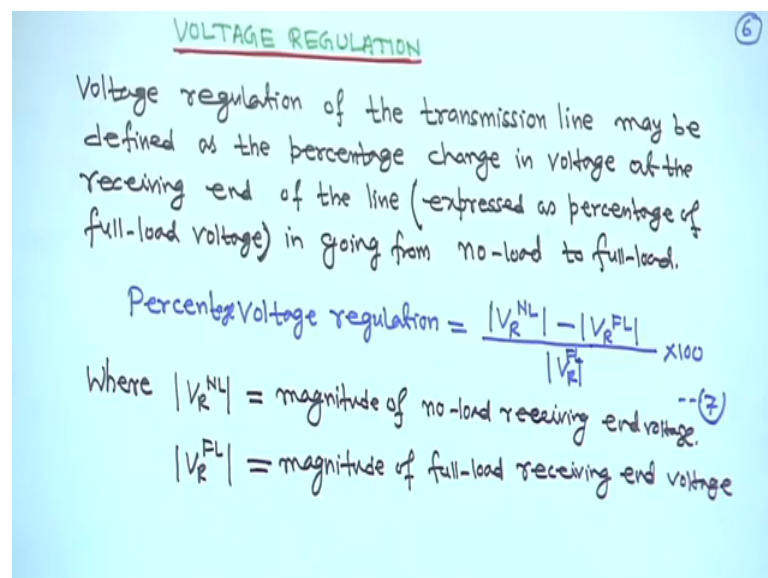 VOLTAGE REGULATION
6
Voltage regulation of the transmission line may be
defined as the percentage change in voltage at the
receiving end of the line (expressed as percentage of
full-load voltage) in going from no-load to full-load.
Percentage Voltage regulation = (|V_R^NL| - |V_R^FL|) / |V_R^FL| × 100
--(7)
Where |V_R^NL| = magnitude of no-load receiving end voltage.
|V_R^FL| = magnitude of full-load receiving end voltage